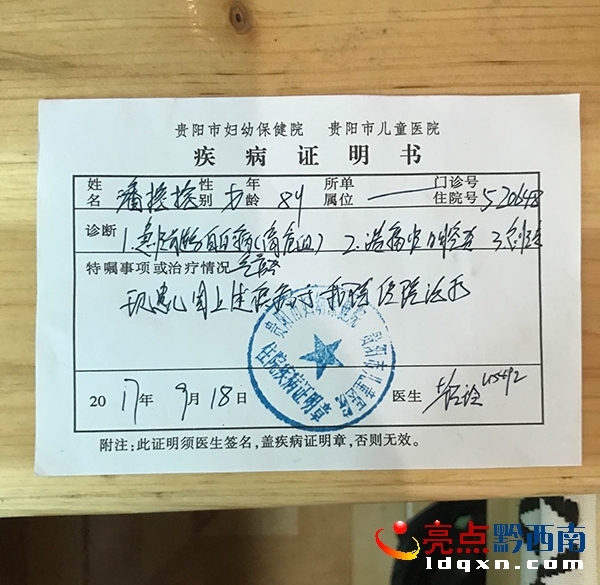 贵阳市妇幼保健院 贵阳市儿童医院
疾病证明书
姓名 潘 性别 女 年龄 8岁 所属单位 — 门诊号 住院号 520648
诊断 1. 白血病(高危) 2. 3.
特嘱事项或治疗情况
现患儿因上述疾病于我院住院治疗
贵阳市妇幼保健院 贵阳市儿童医院
住院疾病证明章
2017年9月18日 医生
附注:此证明须医生签名,盖疾病证明章,否则无效。
亮点黔西南
ldqxn.com